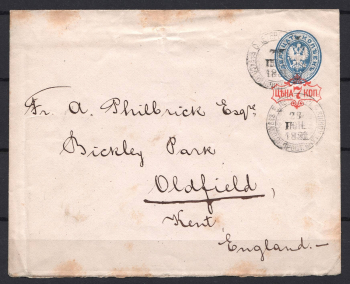 ЦѢНА 7 КОП
Fr. A. Philbrick Esqre
Bickley Park
Oldfield,
Kent,
England.—